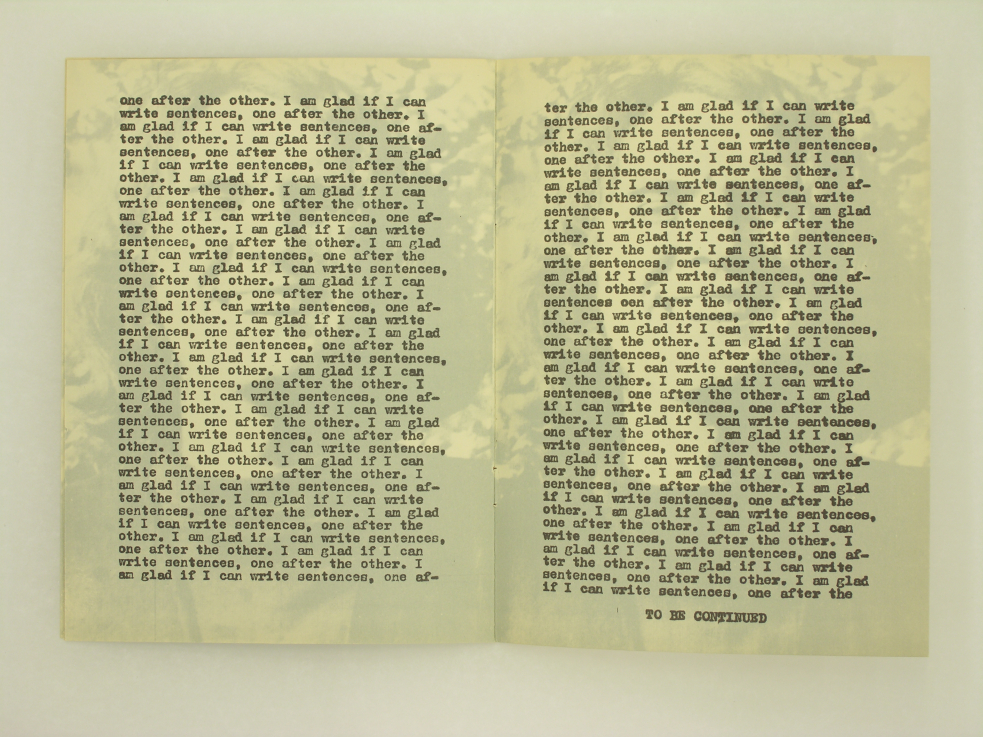 one after the other. I am glad if I can
write sentences, one after the other. I
am glad if I can write sentences, one af-
ter the other. I am glad if I can write
sentences, one after the other. I am glad
if I can write sentences, one after the
other. I am glad if I can write sentences,
one after the other. I am glad if I can
write sentences, one after the other. I
am glad if I can write sentences, one af-
ter the other. I am glad if I can write
sentences, one after the other. I am glad
if I can write sentences, one after the
other. I am glad if I can write sentences,
one after the other. I am glad if I can
write sentences, one after the other. I
am glad if I can write sentences, one af-
ter the other. I am glad if I can write
sentences, one after the other. I am glad
if I can write sentences, one after the
other. I am glad if I can write sentences,
one after the other. I am glad if I can
write sentences, one after the other. I
am glad if I can write sentences, one af-
ter the other. I am glad if I can write
sentences, one after the other. I am glad
if I can write sentences, one after the
other. I am glad if I can write sentences,
one after the other. I am glad if I can
write sentences, one after the other. I
am glad if I can write sentences, one af-
ter the other. I am glad if I can write
sentences, one after the other. I am glad
if I can write sentences, one after the
other. I am glad if I can write sentences,
one after the other. I am glad if I can
write sentences, one after the other. I
am glad if I can write sentences, one af-
ter the other. I am glad if I can write
sentences, one after the other. I am glad
if I can write sentences, one after the
other. I am glad if I can write sentences,
one after the other. I am glad if I can
write sentences, one after the other. I
am glad if I can write sentences, one af-
ter the other. I am glad if I can write
sentences, one after the other. I am glad
if I can write sentences, one after the
other. I am glad if I can write sentences,
one after the other. I am glad if I can
write sentences, one after the other. I
am glad if I can write sentences, one af-
ter the other. I am glad if I can write
sentences oen after the other. I am glad
if I can write sentences, one after the
other. I am glad if I can write sentences,
one after the other. I am glad if I can
write sentences, one after the other. I
am glad if I can write sentences, one af-
ter the other. I am glad if I can write
sentences, one after the other. I am glad
if I can write sentences, one after the
other. I am glad if I can write sentences,
one after the other. I am glad if I can
write sentences, one after the other. I
am glad if I can write sentences, one af-
ter the other. I am glad if I can write
sentences, one after the other. I am glad
if I can write sentences, one after the
other. I am glad if I can write sentences,
one after the other. I am glad if I can
write sentences, one after the other. I
am glad if I can write sentences, one af-
ter the other. I am glad if I can write
sentences, one after the other. I am glad
if I can write sentences, one after the
TO BE CONTINUED